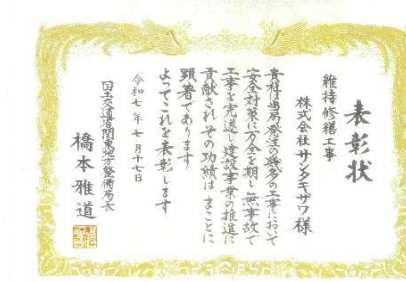 表彰状
維持修繕工事
株式会社サンタキザワ様
貴社は当局発注の幾多の工事において
安全対策に万全を期し無事故で
工事を完遂し建設事業の推進に
貢献されその功績はまことに
顕著であります
よってこれを表彰します
令和七年七月十七日
国土交通省関東地方整備局長
橋本雅道